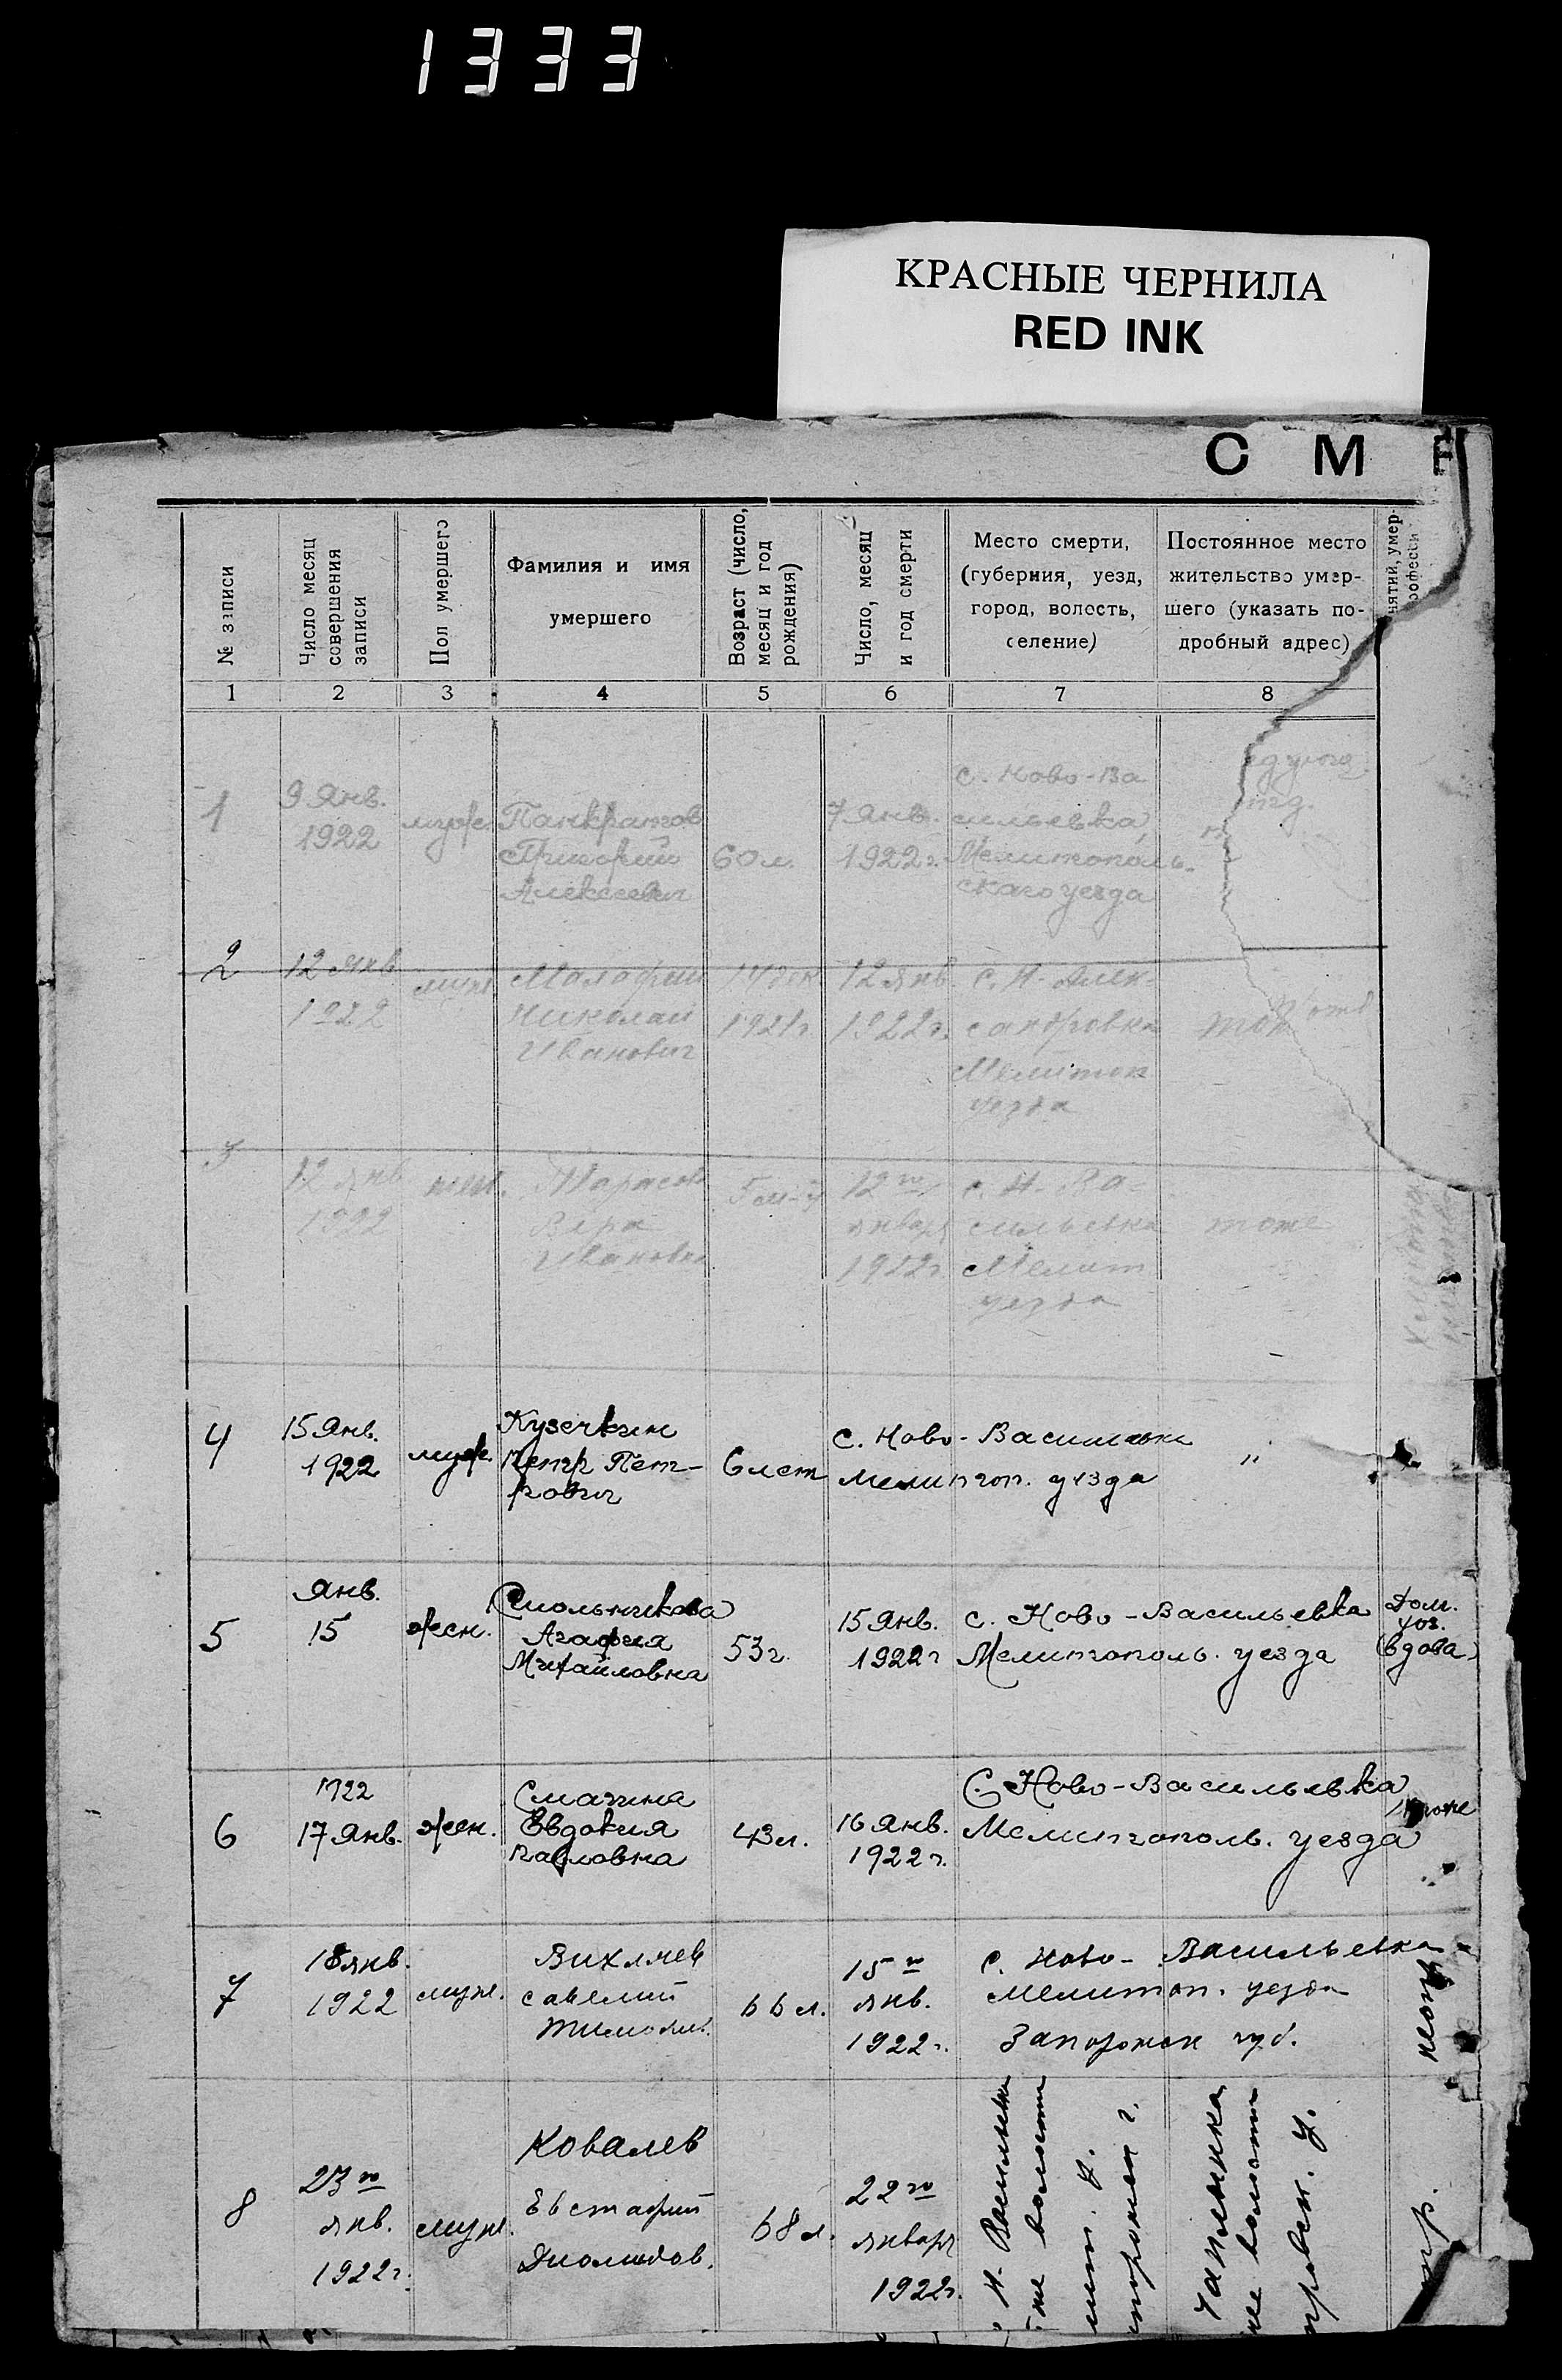 1333
КРАСНЫЕ ЧЕРНИЛА
RED INK
С М
№ записи
Число месяц
совершения
записи
Пол умершего
Фамилия и имя
умершего
Возраст (число,
месяц и год
рождения)
Число, месяц
и год смерти
Место смерти,
(губерния, уезд,
город, волость,
селение)
Постоянное место
жительство умер-
шего (указать по-
дробный адрес)
нятий, умер-
рофесси
1 2 3 4 5 6 7 8
1
9 Янв.
1922
муж.
Панкратов
Григорий
Алексеевич
60 л.
7 Янв.
1922 г.
с. Ново-Ва
сильевка,
Мелитополь-
скаго уезда
2
12 янв
1922
муж
Николай
Иванович
14 дек
1921 г
12 янв.
1922 г.
с. Н-Алек-
сандровка
Мелитоп
уезда
3
12 янв
1922
жен.
Вера
Ивановна
12 го
января
1922 г
с. Н-Ва-
сильевка
Мелит
уезда
тоже
4
15 Янв.
1922
муж.
Кузечкин
Петр Пет-
рович
6 лет
с. Ново-Васильевка
Мелитоп. уезда
"
5
Янв.
15
жен.
Смольникова
Агафия
Михайловна
53 г.
15 Янв.
1922 г
с. Ново-Васильевка
Мелитополь. уезда
Дом.
хоз.
(вдова)
6
1922
17 Янв.
жен.
Смагина
Евдокия
Павловна
43 л.
16 Янв.
1922 г.
С. Ново-Васильевка
Мелитополь. уезда
7
18 янв.
1922
муж.
Вихляев
Савелий
Тимофив.
66 л.
15 го
янв.
1922 г.
с. Ново-Васильевка
Мелитоп. уезда
Запорожск губ.
8
23 го
янв.
1922 г.
муж.
Ковалев
Евстафий
68 л.
22 го
января
1922 г.
Н-Васильевка
волости